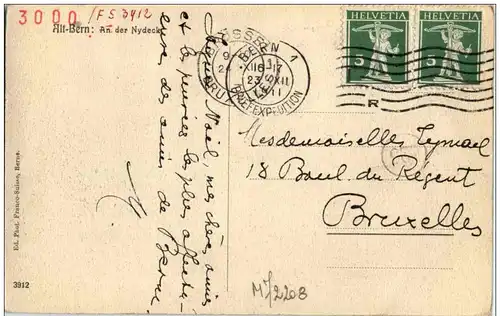 3000 /FS 3912
Alt-Bern: An. der Nydeck
HELVETIA HELVETIA
5 5
BERN 1
23.XII
11
BRIEFEXPEDITION
R
Noël, mes chères amies
et les pensées les plus affectu-
euses des amies de Berne.
Mesdemoiselles
18 Boul. du Régent
Bruxelles
Ed. Phot. Franco-Suisse, Berne.
3912
M/2208